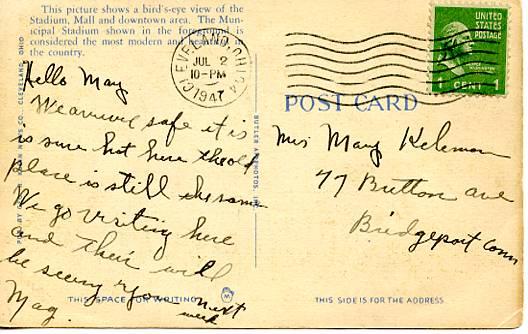 This picture shows a bird's-eye view of the
Stadium, Mall and downtown area. The Mun-
icipal Stadium shown in the foreground is
considered the most modern and beautiful in
the country.
CLEVELAND, OHIO
JUL 2
10-PM
1947
UNITED
STATES
POSTAGE
1 CENT 1
POST CARD
Hello May
We arrived safe it is
is sure hot here the old
place is still the same
We go visiting here
and then will
be seeing you next
week
May.
Mrs Mary Keleman
77 Button ave
Bridgeport Conn
THIS SPACE FOR WRITING
THIS SIDE IS FOR THE ADDRESS